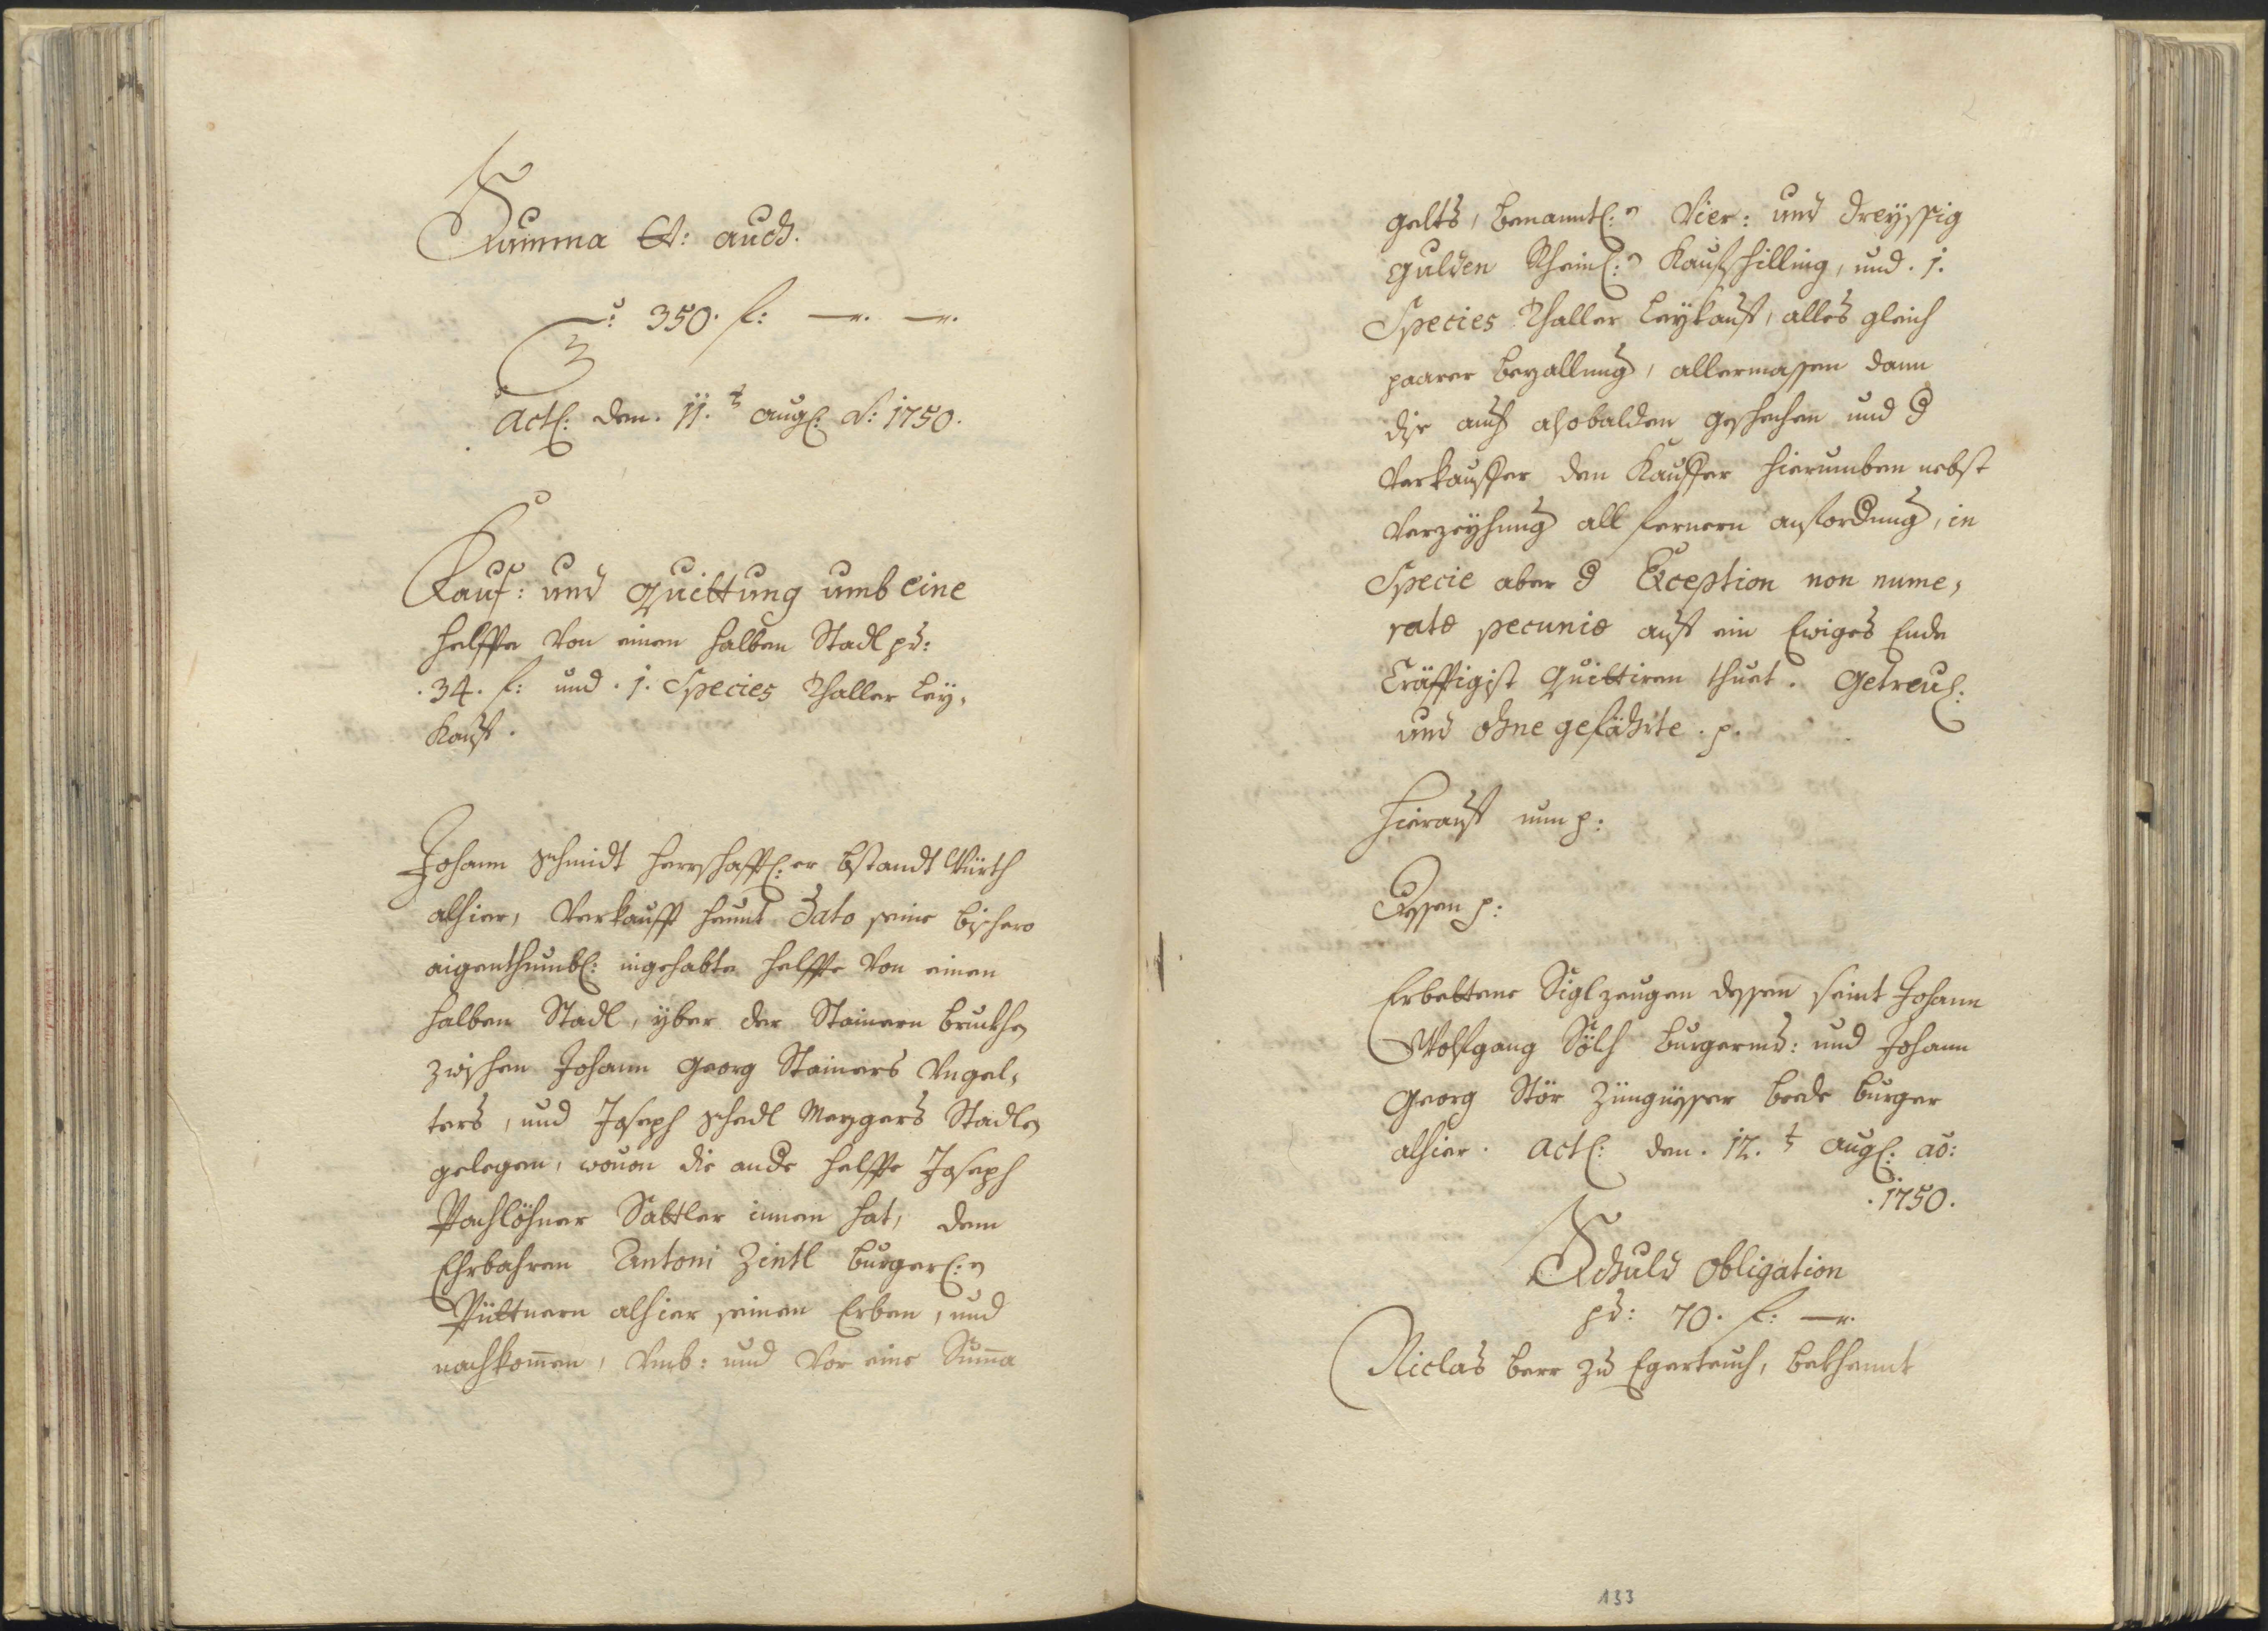 Summa St: auch.
: 350. f: —. —.
Actl: den. 11.t Augl: ao: 1750.
Kauf: und Quittung umb eine
helffte von einen halben Stadl pr:
.34. f: und .1. Species Thaller Ley,
Kauff.
Johann Schmidt herrschafftl:er bstandt Würth
alhier, Verkaufft heunt Dato seine bishero
aigenthumbl: ingehabte helffte von einen
halben Stadl, yber der Stainern bruckhen
zwischen Johann Georg Stainers Ungel,
ters, und Joseph Schedl Mezgers Stadln
gelegen, wovon die andere helffte Joseph
Pachlöhner Sattler innen hat, dem
Ehrbahren Antoni Zintl burgerl:n
Püttnern alhier seinen Erben, und
nachkommen, Umb: und Vor eine Summa
gelts, benanntl:n Vier: und dreyssig
gulden Rheinl:n Kaufschilling, und .1.
Species Thaller Leykauff, alles gleich
paarer bezallung, allermassen dann
dise auch alsobalden geschechen und der
Verkauffer den Kauffer hierumben nebst
Verzeyhung all fernern anforderung, in
Specie aber der Exception non nume,
ratæ pecuniæ auff ein Ewiges Ende
Cräfftigist Quittiren thuet. Getreul:
und ohne gefährte. p.
Hierauff nun p:
Dessen p:
Erbettene Siglzeugen dessen seint Johann
Wolfgang Sölch burgermr: und Johann
Georg Stör Züngiesser beede burger
alhier. Actl: den. 12.t Augl: ao:
.1750.
Schuld Obligation
pr: 70. f: —.
Niclas berr zu Egerteuch, bekhennt
133